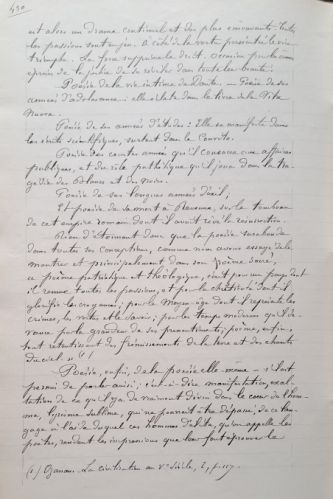 430
est alors un drame continuel et des plus émouvants. Toutes
les passions sont en jeu. À côté de la vertu persécutée le vice
triomphe. La force opprime le droit.
Poésie de la vie intime de Dante. — Poésie de ses
années d'adolescence : elle éclate dans le livre de la Vita
Nuova.
Poésie de ses années d'études : Elle se manifeste dans
les écrits scientifiques, surtout dans le Convito.
Poésie des courtes années qu'il consacra aux affaires
publiques, et du rôle pathétique qu'il joua dans la tra-
gédie des Blancs et des Noirs.
Poésie de ses longues années d'exil,
Et poésie de sa mort à Ravenne, sur le tombeau
de cet empire romain dont il avait rêvé la résurrection.
Rien d'étonnant donc que la poésie
dans toutes ses conceptions, comme nous avons essayé de le
montrer et principalement dans son "poème sacré,
ce poème patriotique et théologique, écrit pour
il remue toutes les passions, et pour la chrétienté dont il
glorifie les croyances ; pour le Moyen-âge dont il représente les
crimes, les vertus et le savoir ; pour les temps modernes qu'il de-
vance par la grandeur de ses pressentiments ; poème, enfin,
tout retentissant des frémissements de la terre et des chants
du ciel" (1)
Poésie, enfin, de la poésie elle-même — s'il est
permis de parler ainsi ; c'est-à-dire manifestation, exal-
tation de ce qu'il y a de vraiment divin dans le cœur de l'hom-
me, lyrisme sublime, de ce lan-
gage à l'aide duquel ces hommes d'élite, qu'on appelle les
poètes, rendent les impressions que leur fait éprouver la
(1) Ozanam. La civilisation au Ve siècle, I, p. 117.